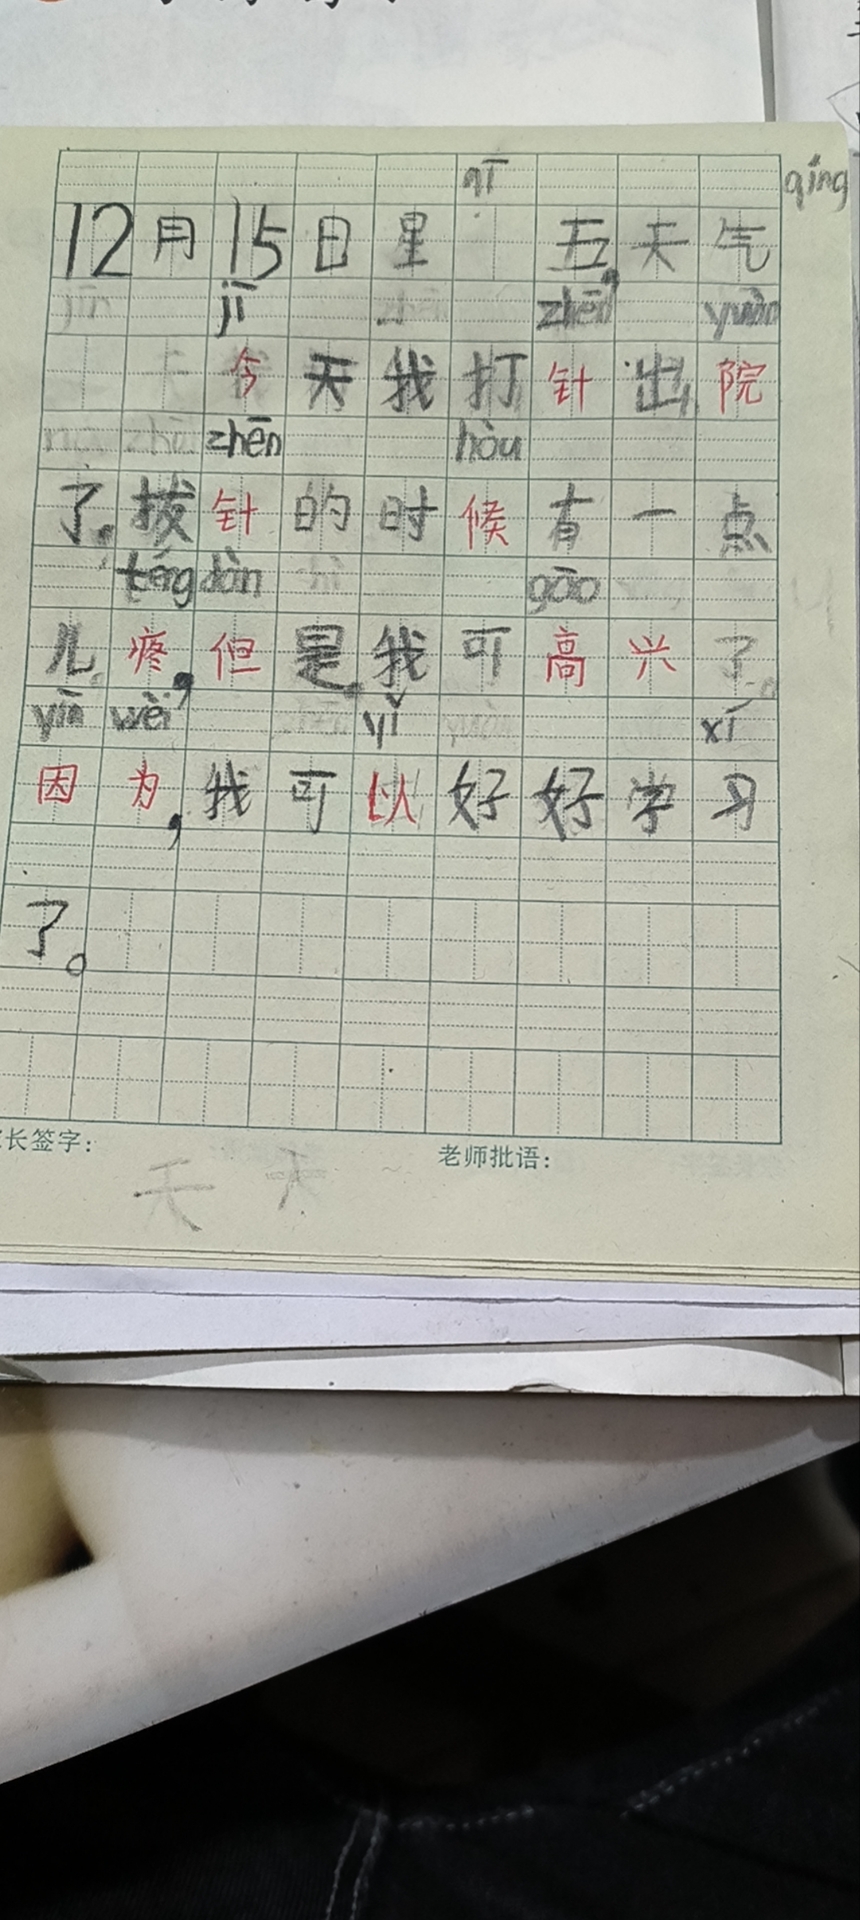 qī qíng
12月15日星 五,天气
jī zhēn yuàn
今天我打针出院
zhēn hòu
了。拔针的时候有一点
téng dàn gāo
儿疼,但是我可高兴了。
yīn wèi yǐ xí
因为,我可以好好学习
了。
长签字: 老师批语:
天 天